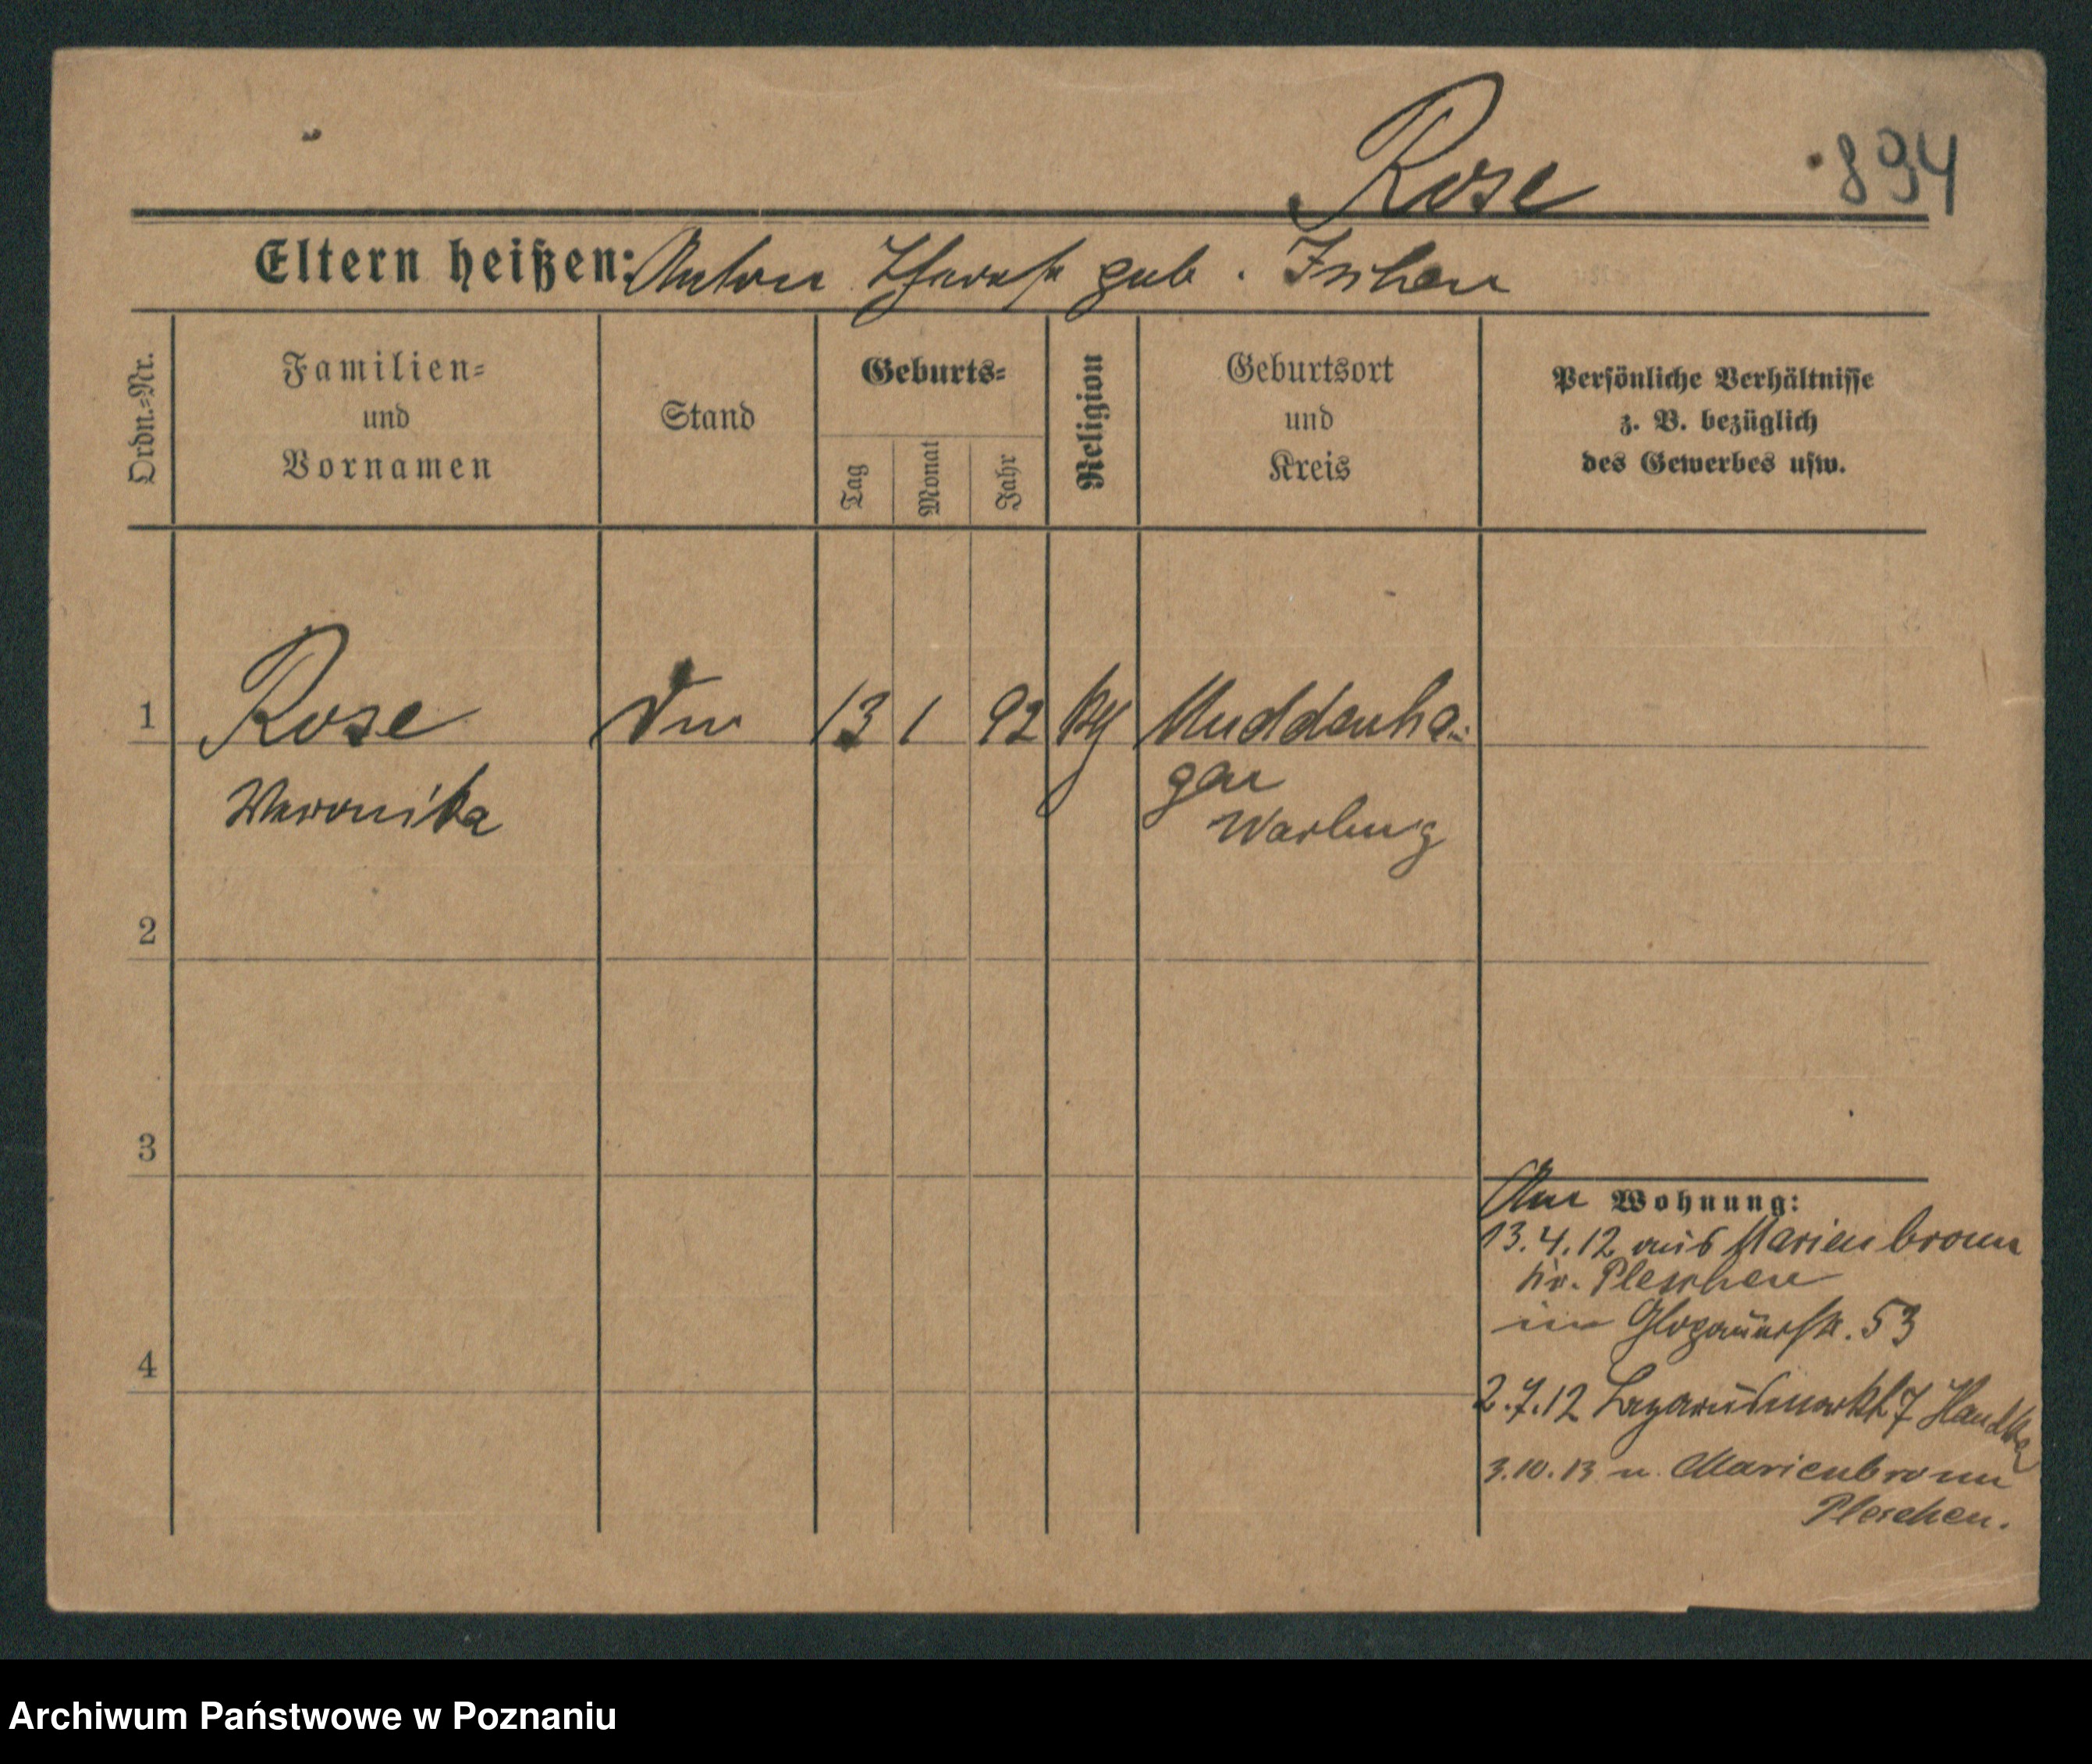 Rose
894
Eltern heißen: Anton Therese geb. Ischen
Ordn.-Nr.
Familien-
und
Vornamen
Stand
Geburts-
Tag
Monat
Jahr
Religion
Geburtsort
und
Kreis
Persönliche Verhältnisse
z. B. bezüglich
des Gewerbes usw.
1
Rose
13 1 92
Muddenha-
gen
Weronika
Warburg
2
3
4
Wohnung:
13.4.12 aus Marienbronn
Kr. Pleschen
in Glogauerstr. 53
2.7.12 Lazarusmarkt 7
3.10.13 n. Marienbronn
Pleschen.
Archiwum Państwowe w Poznaniu